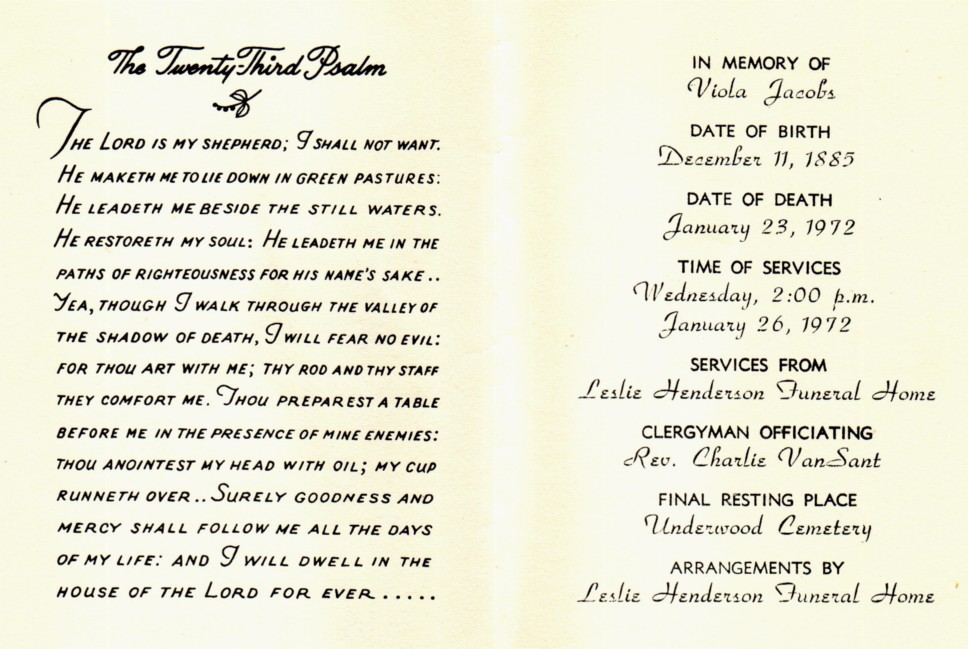 The Twenty-Third Psalm
The Lord is my shepherd; I shall not want.
He maketh me to lie down in green pastures:
He leadeth me beside the still waters.
He restoreth my soul: He leadeth me in the
paths of righteousness for his name's sake..
Yea, though I walk through the valley of
the shadow of death, I will fear no evil:
for thou art with me; thy rod and thy staff
they comfort me. Thou preparest a table
before me in the presence of mine enemies:
thou anointest my head with oil; my cup
runneth over.. Surely goodness and
mercy shall follow me all the days
of my life: and I will dwell in the
house of the Lord for ever.....
IN MEMORY OF
Viola Jacobs
DATE OF BIRTH
December 11, 1885
DATE OF DEATH
January 23, 1972
TIME OF SERVICES
Wednesday, 2:00 p.m.
January 26, 1972
SERVICES FROM
Leslie Henderson Funeral Home
CLERGYMAN OFFICIATING
Rev. Charlie VanSant
FINAL RESTING PLACE
Underwood Cemetery
ARRANGEMENTS BY
Leslie Henderson Funeral Home